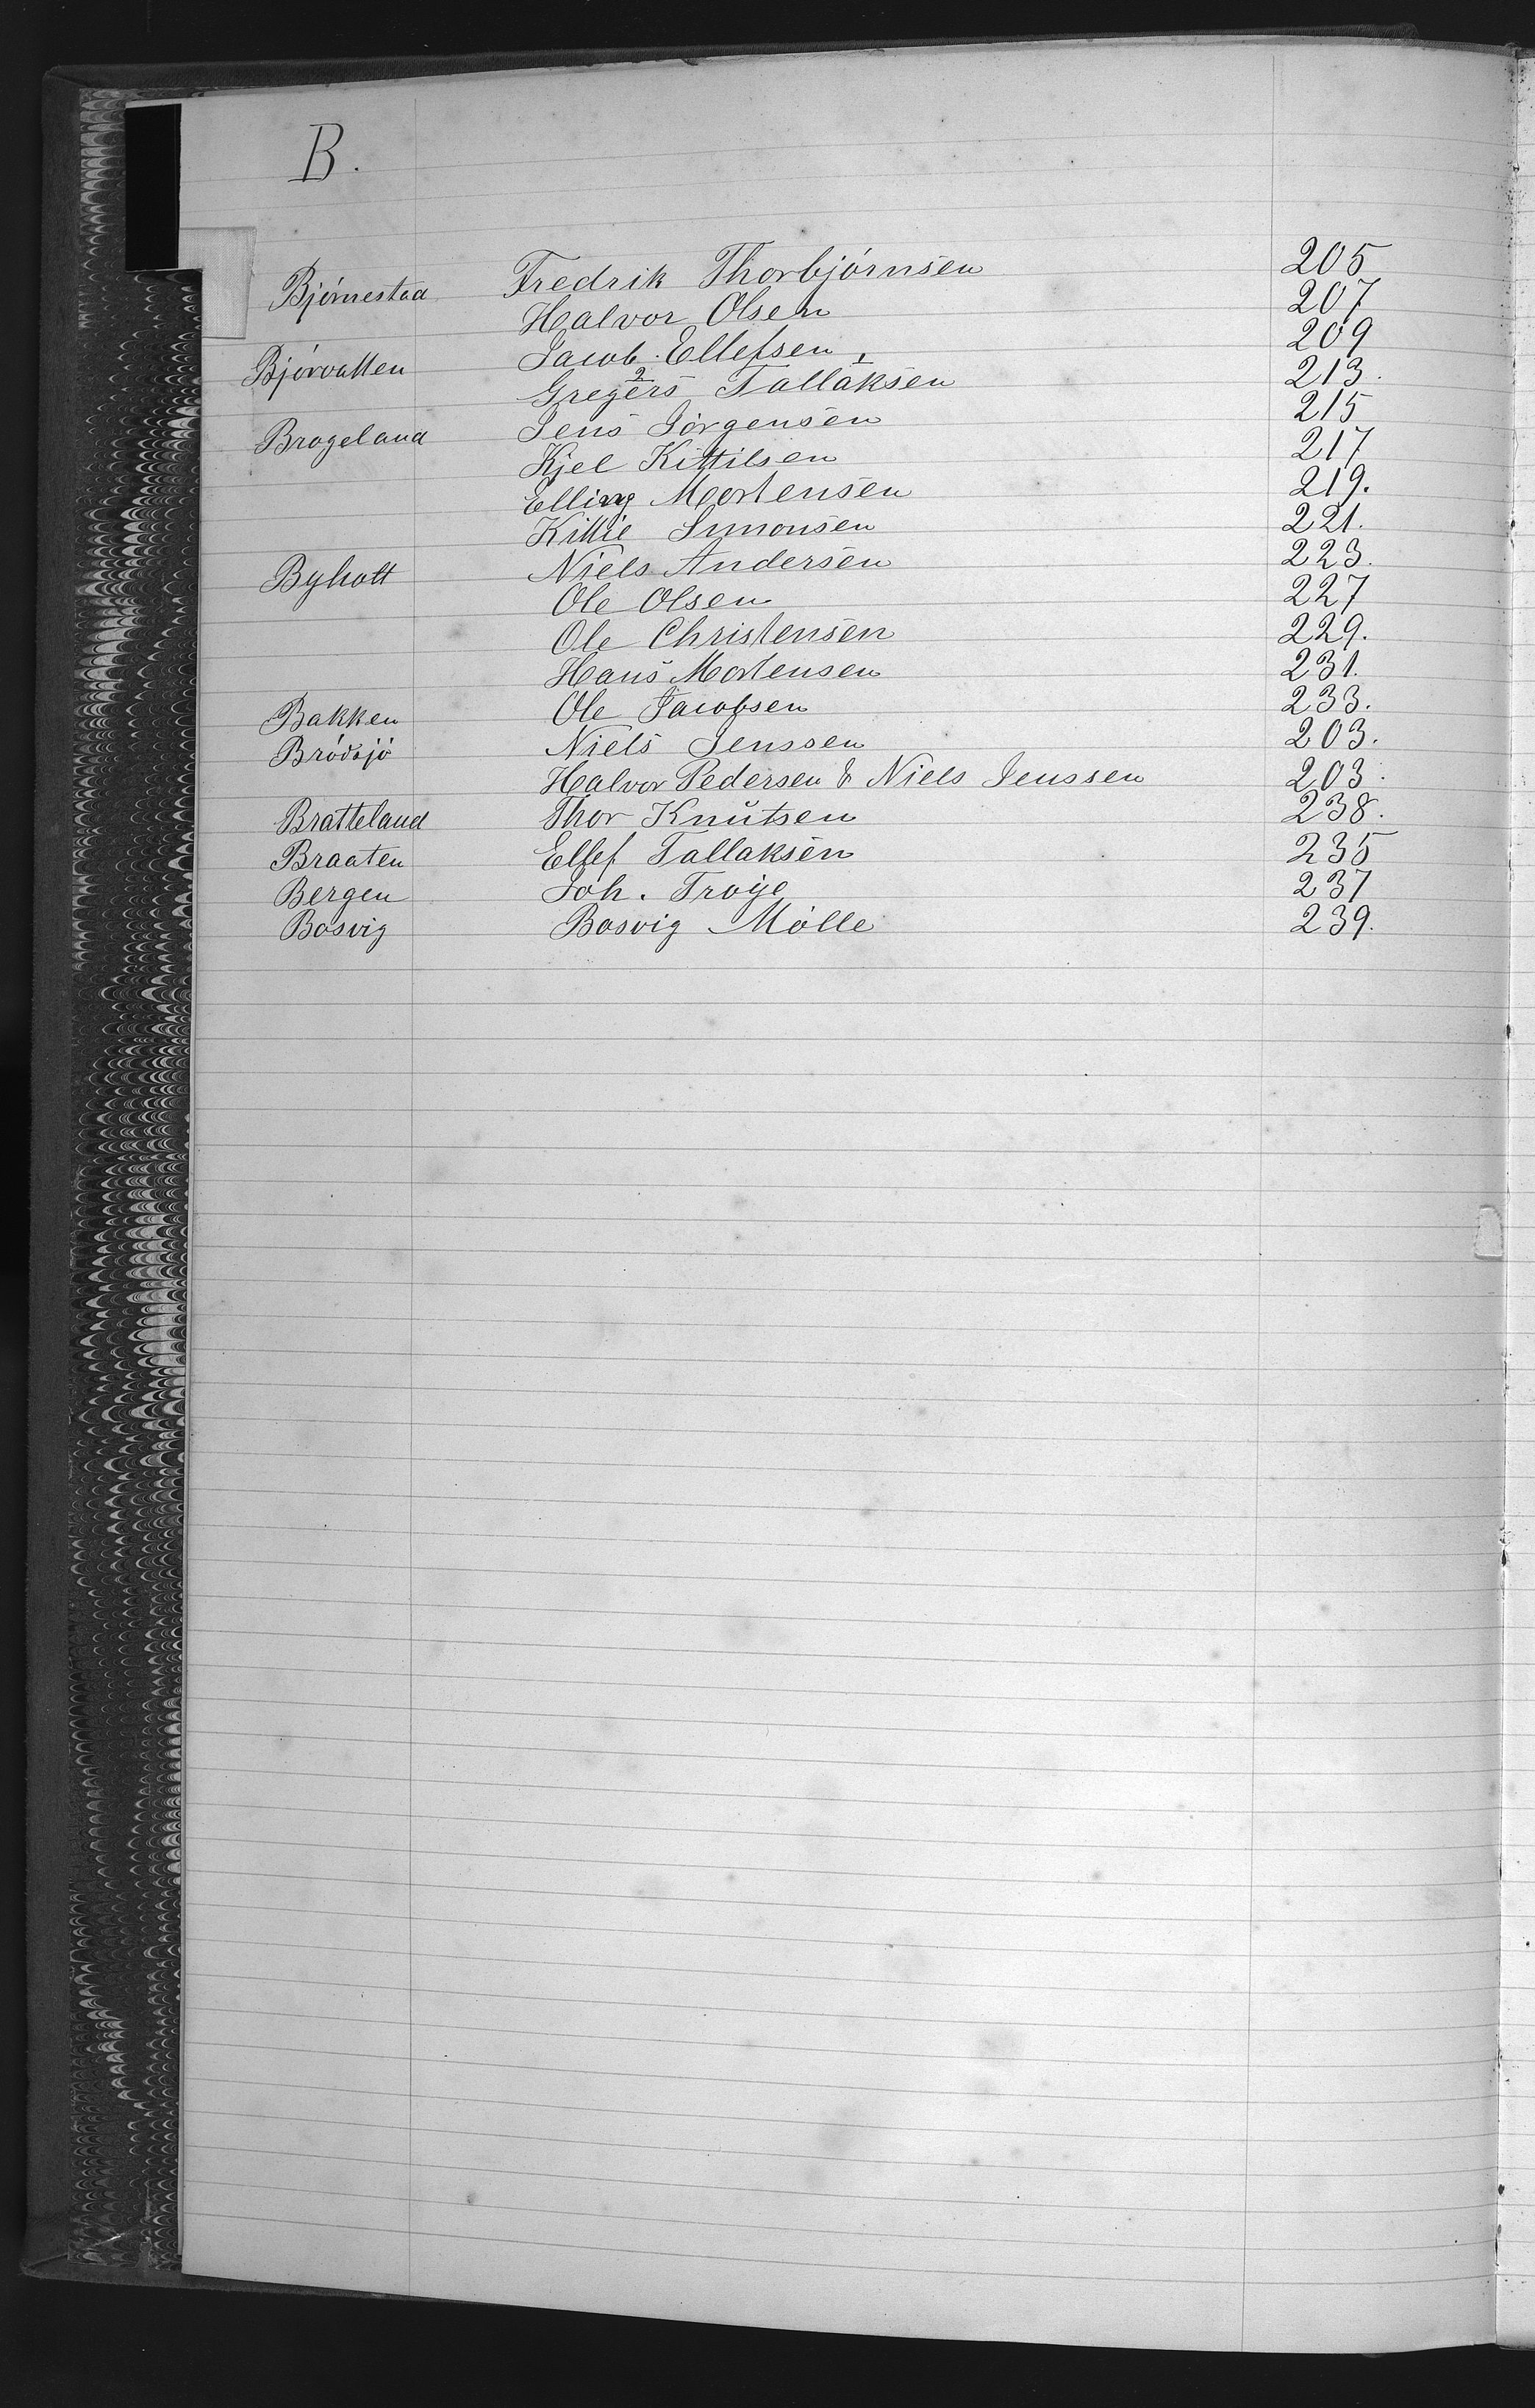 B.
Bjørnestad Fredrik Thorbjørnsen 205
Halvor Olsen 207
Bjørvatten Jacob Ellefsen 209
Gregers 2 Tallaksen 1 213.
Brageland Jens Jørgensen 215
Kjel Kittilsen 217
Elling Mortensen 219.
Kittil Simonsen 221.
Byholt Niels Andersen 223.
Ole Olsen 227
Ole Christensen 229.
Hans Mortensen 231.
Bakken Ole Jacobsen 233.
Brødsjø Niels Jenssen 203.
Halvor Pedersen & Niels Jenssen 203.
Bratteland Thor Knutsen 238.
Braaten Ellef Tallaksen 235
Bergen Joh. Troye 237
Bosvig Bosvig Mølle 239.